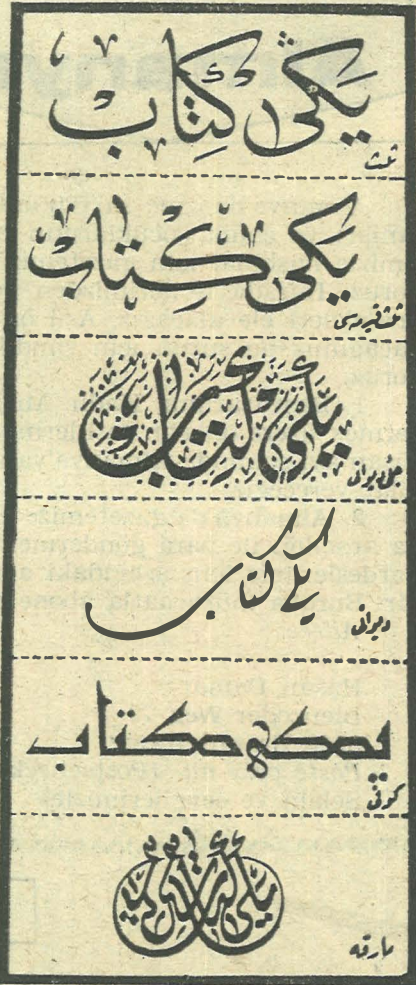 يَڭى كِتَاب
ثلث
يَكى كِتَاب
ثلث
يَكى كِتَاب
جلى ديوانى
يكى كتاب
ديوانى
يكى كتاب
كوفى
يكى كتاب
مارقه